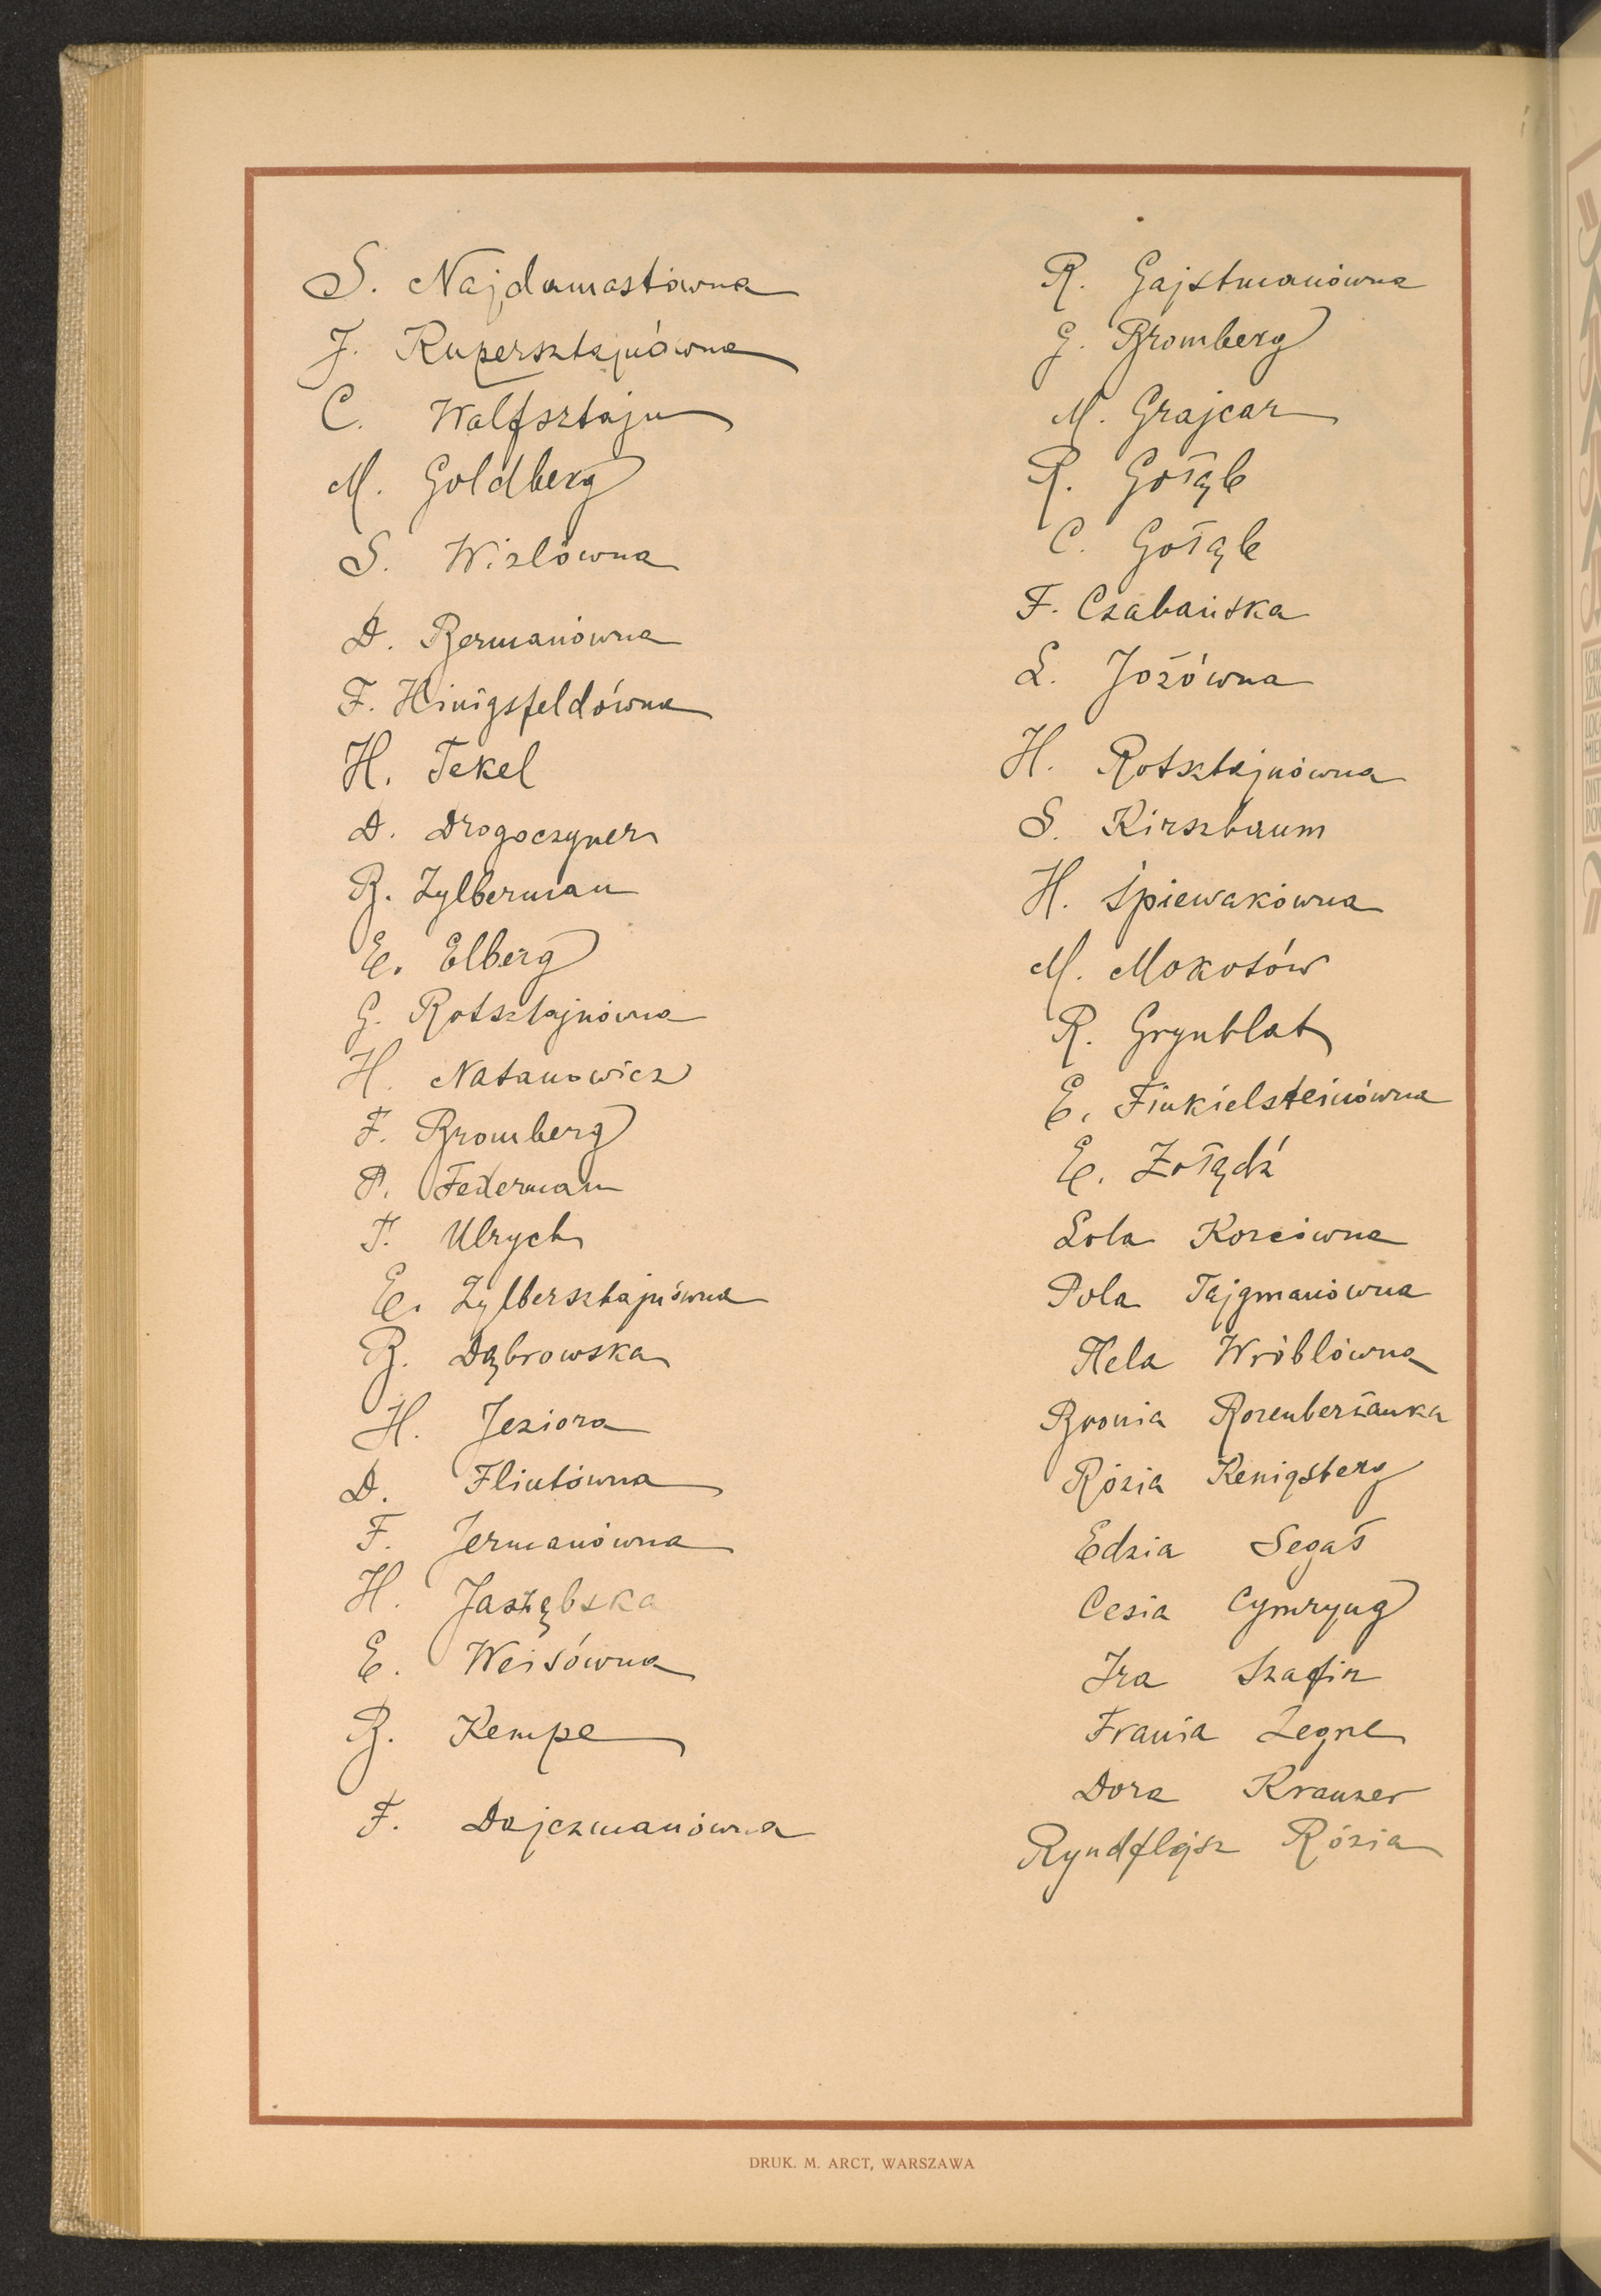 S. Najdamastówna
J. Kupersztajnówna
C. Walfsztajn
M. Goldberg
S. Wizlówna
D. Bermanówna
F. Hinigsfeldówna
H. Tekel
D. Drogoczyner
B. Zylberman
E. Elberg
G. Rotsztajnówna
H. Natanowicz
F. Bromberg
P. Federman
T. Ulrych
E. Zylbersztajnówna
B. Dąbrowska
H. Jeziora
D. Flintówna
F. Jermanówna
H. Jastrzębska
E. Weisówna
B. Kempe
F. Dajczmanówna
R. Gajstmanówna
G. Bromberg
M. Grajcar
R. Gołąb
C. Gołąb
F. Czabańska
L. Józówna
H. Rotsztajnówna
S. Kirszbaum
H. Śpiewakówna
M. Mokotów
R. Grynblat
E. Finkielsteinówna
E. Żołądź
Lola Korcówna
Pola Tajgmanówna
Hela Wróblówna
Bronia Rozenberżanka
Rózia Kenigsberg
Edzia Segał
Cesia Cymryng
Ira Szafir
Frania Legne
Dora Krauzer
Ryndflejsz Rózia
DRUK. M. ARCT, WARSZAWA